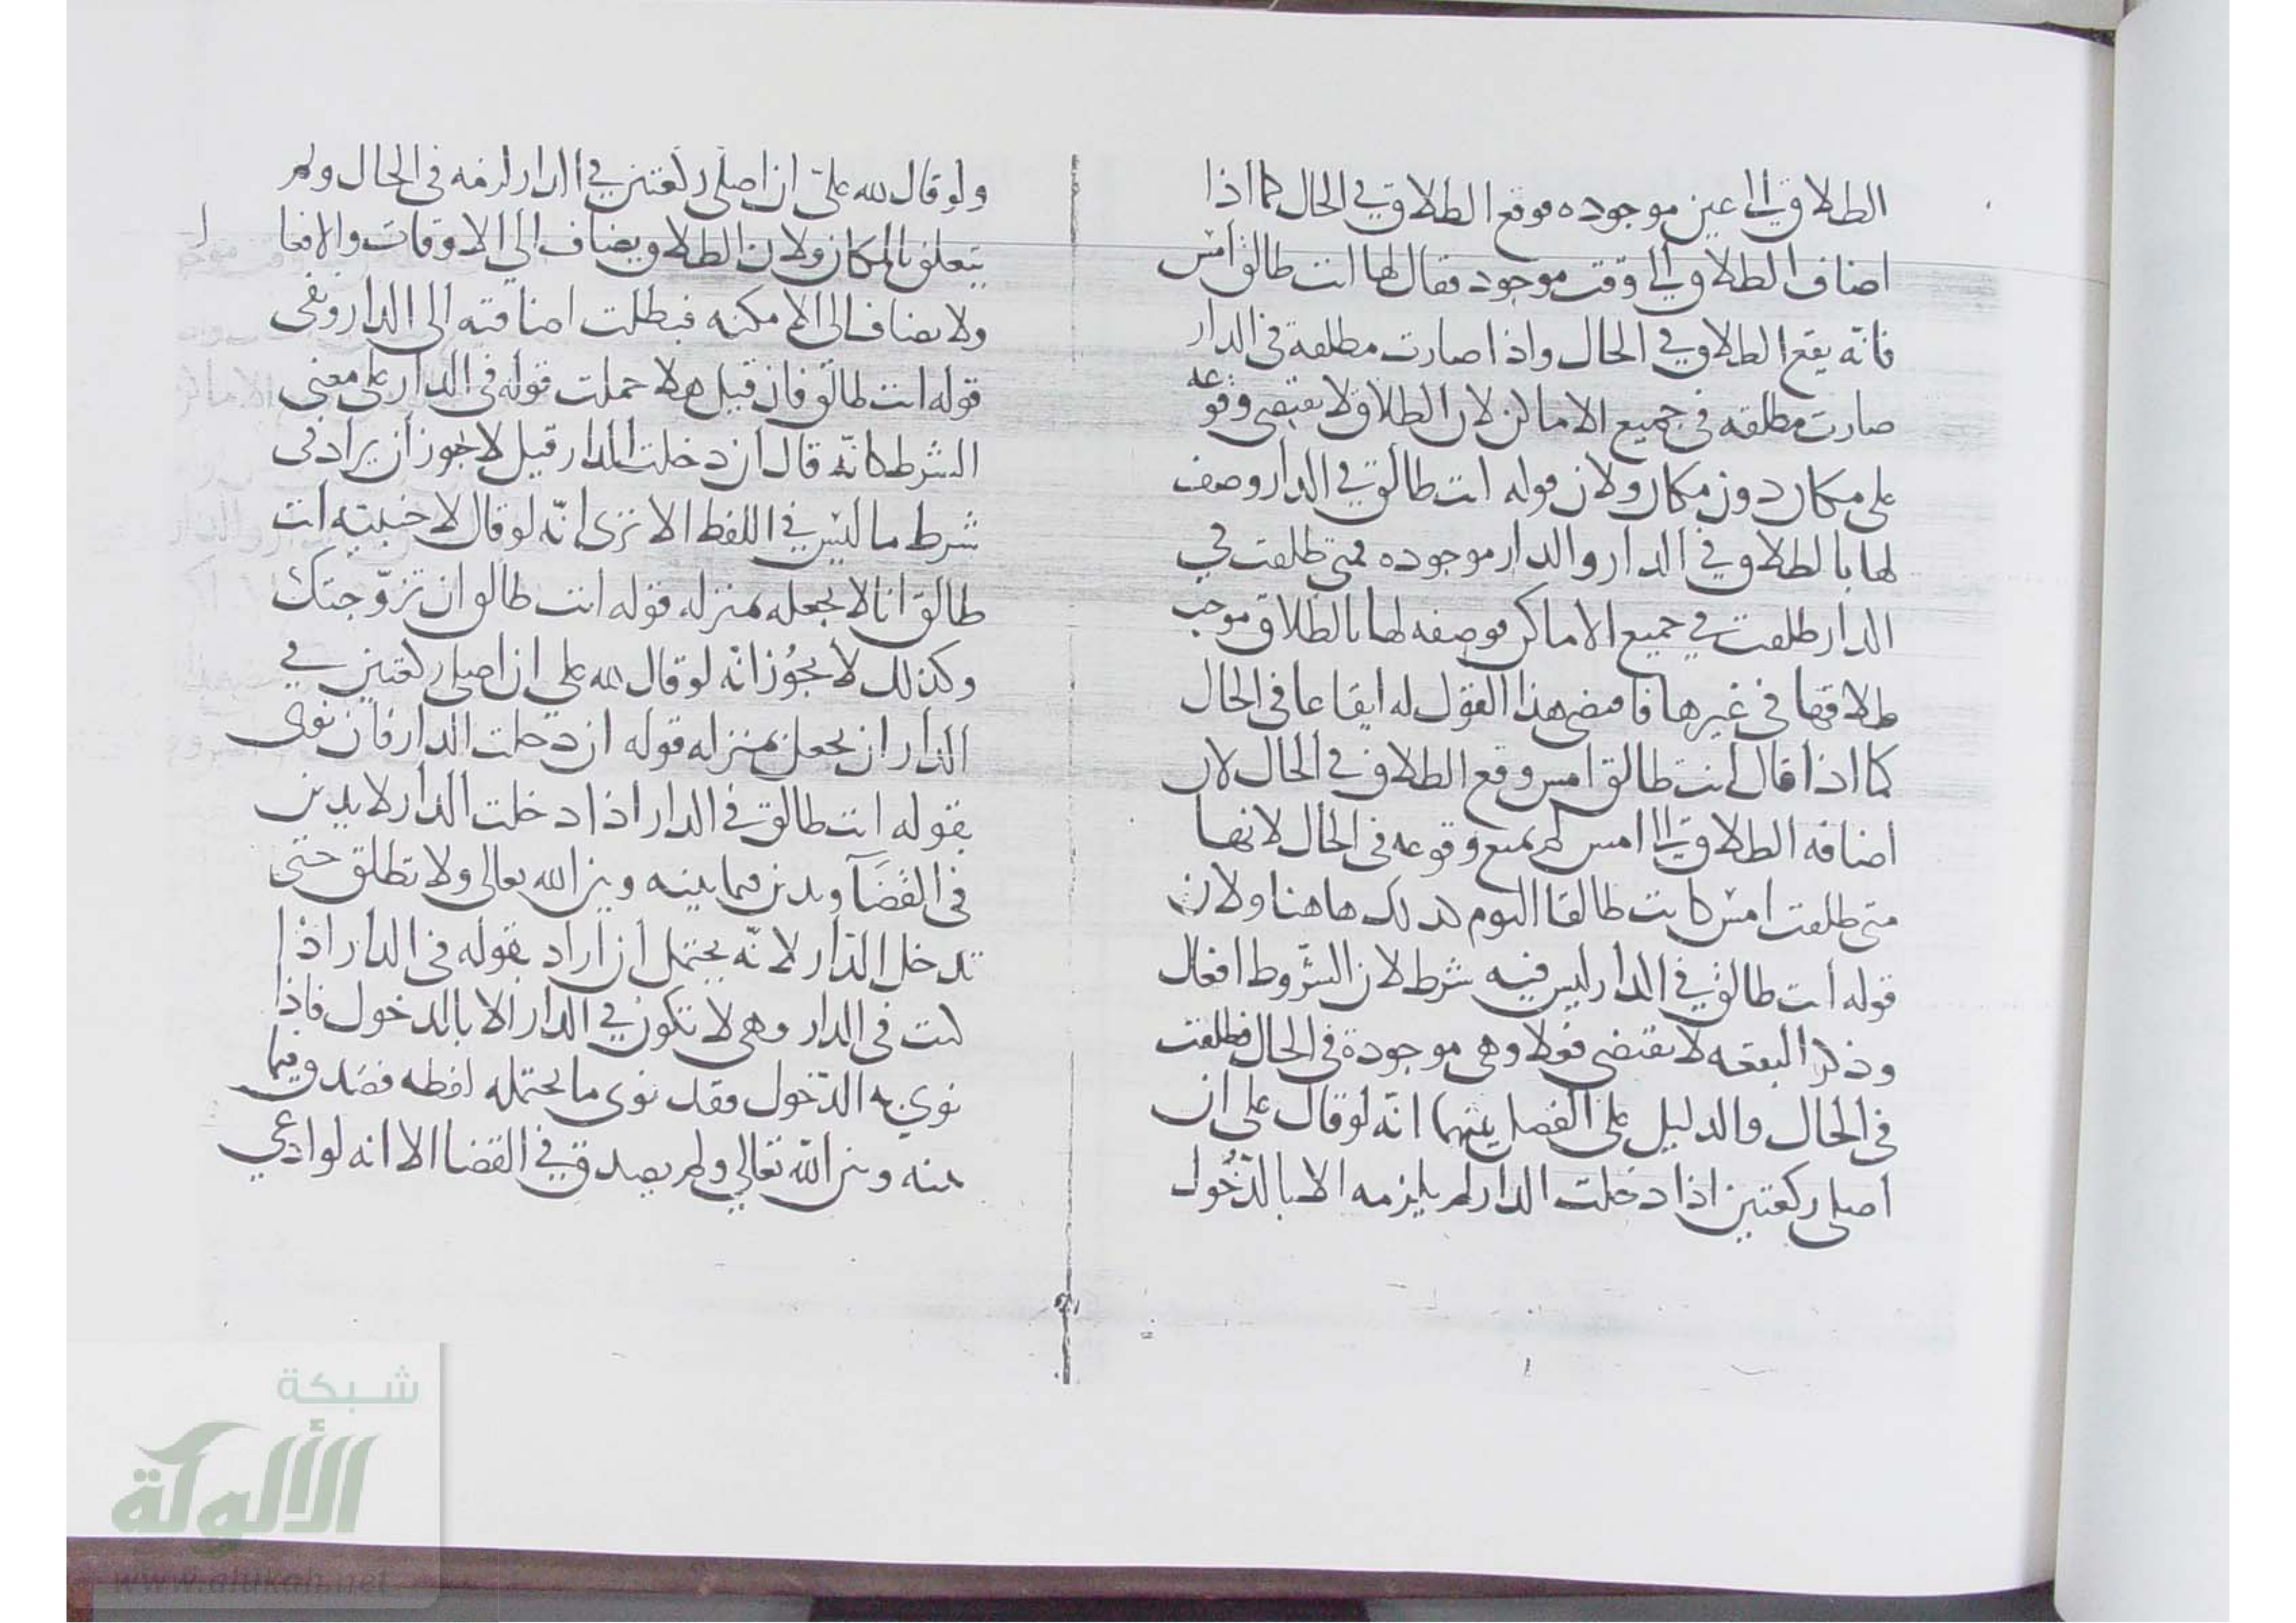 الطلاق الى عين موجوده فوقع الطلاق في الحال كما اذا
اضاف الطلاق الى وقت موجود فقال لها انت طالق امس
فانه يقع الطلاق في الحال واذا صارت مطلقة في الدار
صارت مطلقه في جميع الاماكن لان الطلاق لا يقتضي وقوعه
على مكان دون مكان ولان قوله انت طالق في الدار وصف
لها بالطلاق في الدار والدار موجوده فمتى طلقت في
الدار طلقت في جميع الاماكن فوصفه لها بالطلاق موجب
طلاقها في غيرها فامضى هذا القول له ايقاعا في الحال
كما اذا قال انت طالق امس وقع الطلاق في الحال لان
اضافه الطلاق الى امس لم يمنع وقوعه في الحال لانها
متى طلقت امس كانت طالقا اليوم كذلك هاهنا ولان
قوله انت طالق في الدار ليس فيه شرط لان الشروط افعال
وذكر البقعه لا يقتضي فعلا وهي موجودة في الحال فطلقت
في الحال والدليل على الفصل بينهما انه لو قال على ان
اصلى ركعتين اذا دخلت الدار لم يلزمه الا بالدّخُول
ولو قال لله علىّ ان اصلى ركعتين في الدار لزمه في الحال ولم
يتعلق بالمكان ولان الطلاق يضاف الى الاوقات والافعا
ولا يضاف الى الامكنه فبطلت اضافته الى الدار وبقى
قوله انت طالق فان قيل هلا حملت قوله في الدار على معنى
الشرط كانّه قال ان دخلت الدار قيل لا يجوز ان يراد في
شرط ما ليس في اللفظ الا ترى انّه لو قال لاجنبيّه انت
طالق انا لا نجعله بمنزله قوله انت طالق ان تزوّجتك
وكذلك لا يجُوز انه لو قال لله على ان اصلى ركعتين في
الدار ان يجعل بمنزله قوله ان دخلت الدار فان نوى
بقوله انت طالق في الدار اذا دخلت الدار لا يدين
في القضآ ويدين فيما بينه وبين الله تعالى ولا تطلق حتى
تدخل الدّار لانّه يحتمل ان اراد بقوله في الدار اذا
كنت في الدار وهي لا تكون في الدار الا بالدخول فاذا
نوي به الدّخول فقد نوى ما يحتمله لفظه فصدق فيما
بينه وبين اللّه تعالي ولم يصدق في القضا الا انه لو ادعي
شبكة
الألوكة
www.alukah.net